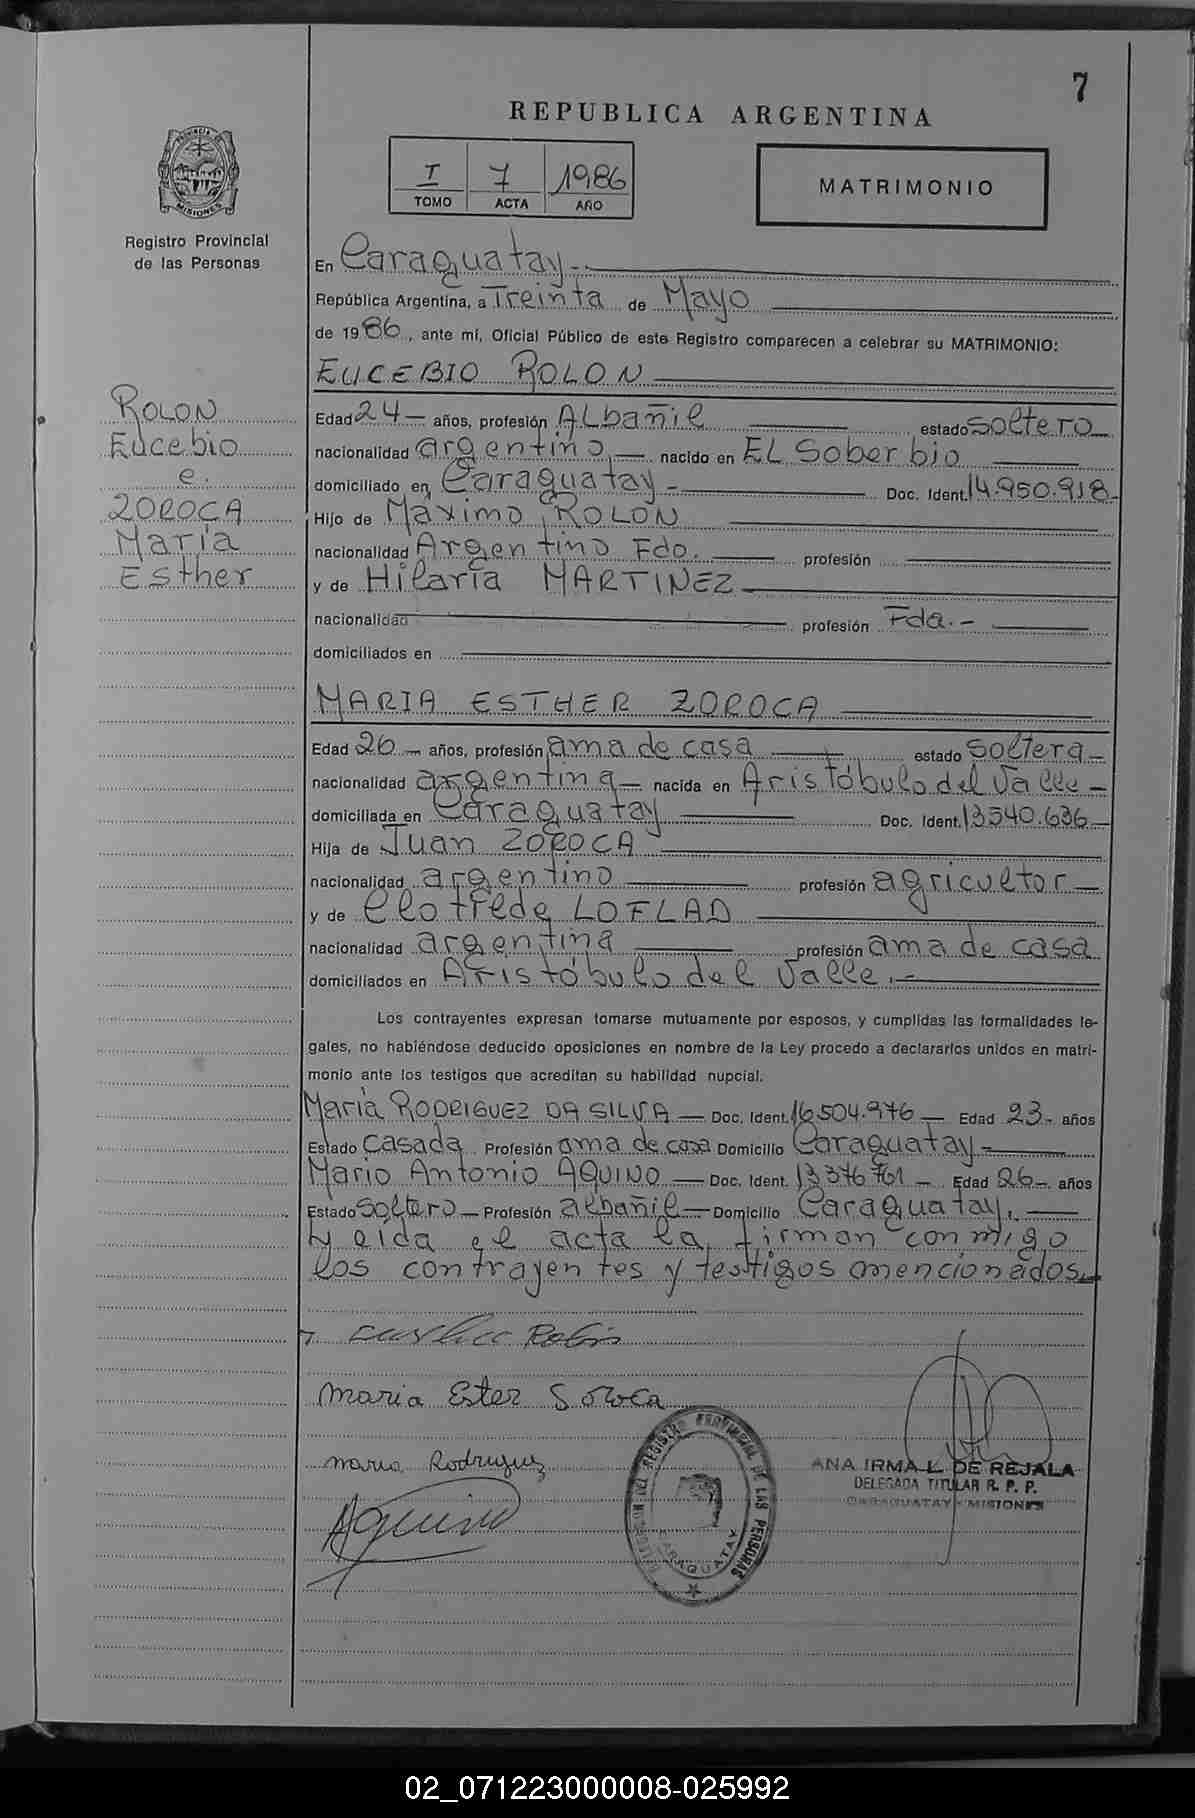 7
REPUBLICA ARGENTINA
PROVINCIA
MISIONES
I 7 1986
TOMO ACTA AÑO
MATRIMONIO
Registro Provincial
de las Personas
En Caraguatay.-
República Argentina, a Treinta de Mayo
de 1986, ante mí, Oficial Público de este Registro comparecen a celebrar su MATRIMONIO:
EUCEBIO ROLON
ROLON
Eucebio
e.
ZOROCA
Maria
Esther
Edad 24 — años, profesión Albañil estado soltero
nacionalidad argentino — nacido en EL Soberbio
domiciliado en Caraguatay - Doc. Ident. 14.950.918-
Hijo de Maximo ROLON
nacionalidad Argentino Fdo. profesión
y de Hilaria MARTINEZ
nacionalidad profesión Fda.-
domiciliados en
MARIA ESTHER ZOROCA
Edad 26 — años, profesión ama de casa estado soltera
nacionalidad argentina — nacida en Aristóbulo del Valle -
domiciliada en Caraguatay Doc. Ident. 13540.636
Hija de Juan ZOROCA
nacionalidad argentino profesión agricultor
y de Clotilde LOFLAD
nacionalidad argentina profesión ama de casa
domiciliados en Aristóbulo del Valle.-
Los contrayentes expresan tomarse mutuamente por esposos, y cumplidas las formalidades le-
gales, no habiéndose deducido oposiciones en nombre de la Ley procedo a declararlos unidos en matri-
monio ante los testigos que acreditan su habilidad nupcial.
Maria RODRIGUEZ DA SILVA — Doc. Ident. 16504.976 — Edad 23- años
Estado casada Profesión ama de casa Domicilio Caraguatay -
Mario Antonio AQUINO — Doc. Ident. 13376761 — Edad 26- años
Estado soltero — Profesión albañil — Domicilio Caraguatay.
Lyeida el acta la firman conmigo
los contrayentes y testigos mencionados.
Rolón
maria Ester Soroca
maria Rodriguez
Aquino
DELEGACION DEL REGISTRO PROVINCIAL DE LAS PERSONAS
CARAGUATAY
ANA IRMA L. DE REJALA
DELEGADA TITULAR R. P. P.
CARAGUATAY - MISIONES
02_071223000008-025992